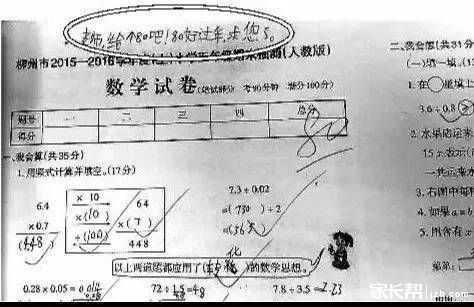 老师,给个80吧!80好过年,求您了。
柳州市2015—2016学年度 (人教版)
数学试卷(笔试部分 考 90分钟 满分100分)
题号 一 二 三 四 总分
得分
80
一、我会算(共35分)
1.用竖式计算并填空。(17分)
6.4
×0.7
(4.48)
×10
×(10)
÷(100)
64
×(7)
448
7.3÷0.02
=(730)÷2
=(365)
以上两道题都应用了(转化)的数学思想。
0.28×0.05=
72÷1.5=48
7.8÷3.5=2.23
二、我会想(共31分)
(一)填一填。(13
1.在○里填上
3.6÷0.8
2.水果店运来
15x表示(
一共运来水
3.右图中每
4.如果a=1
5.用含有x
第
家长帮
jzb.com